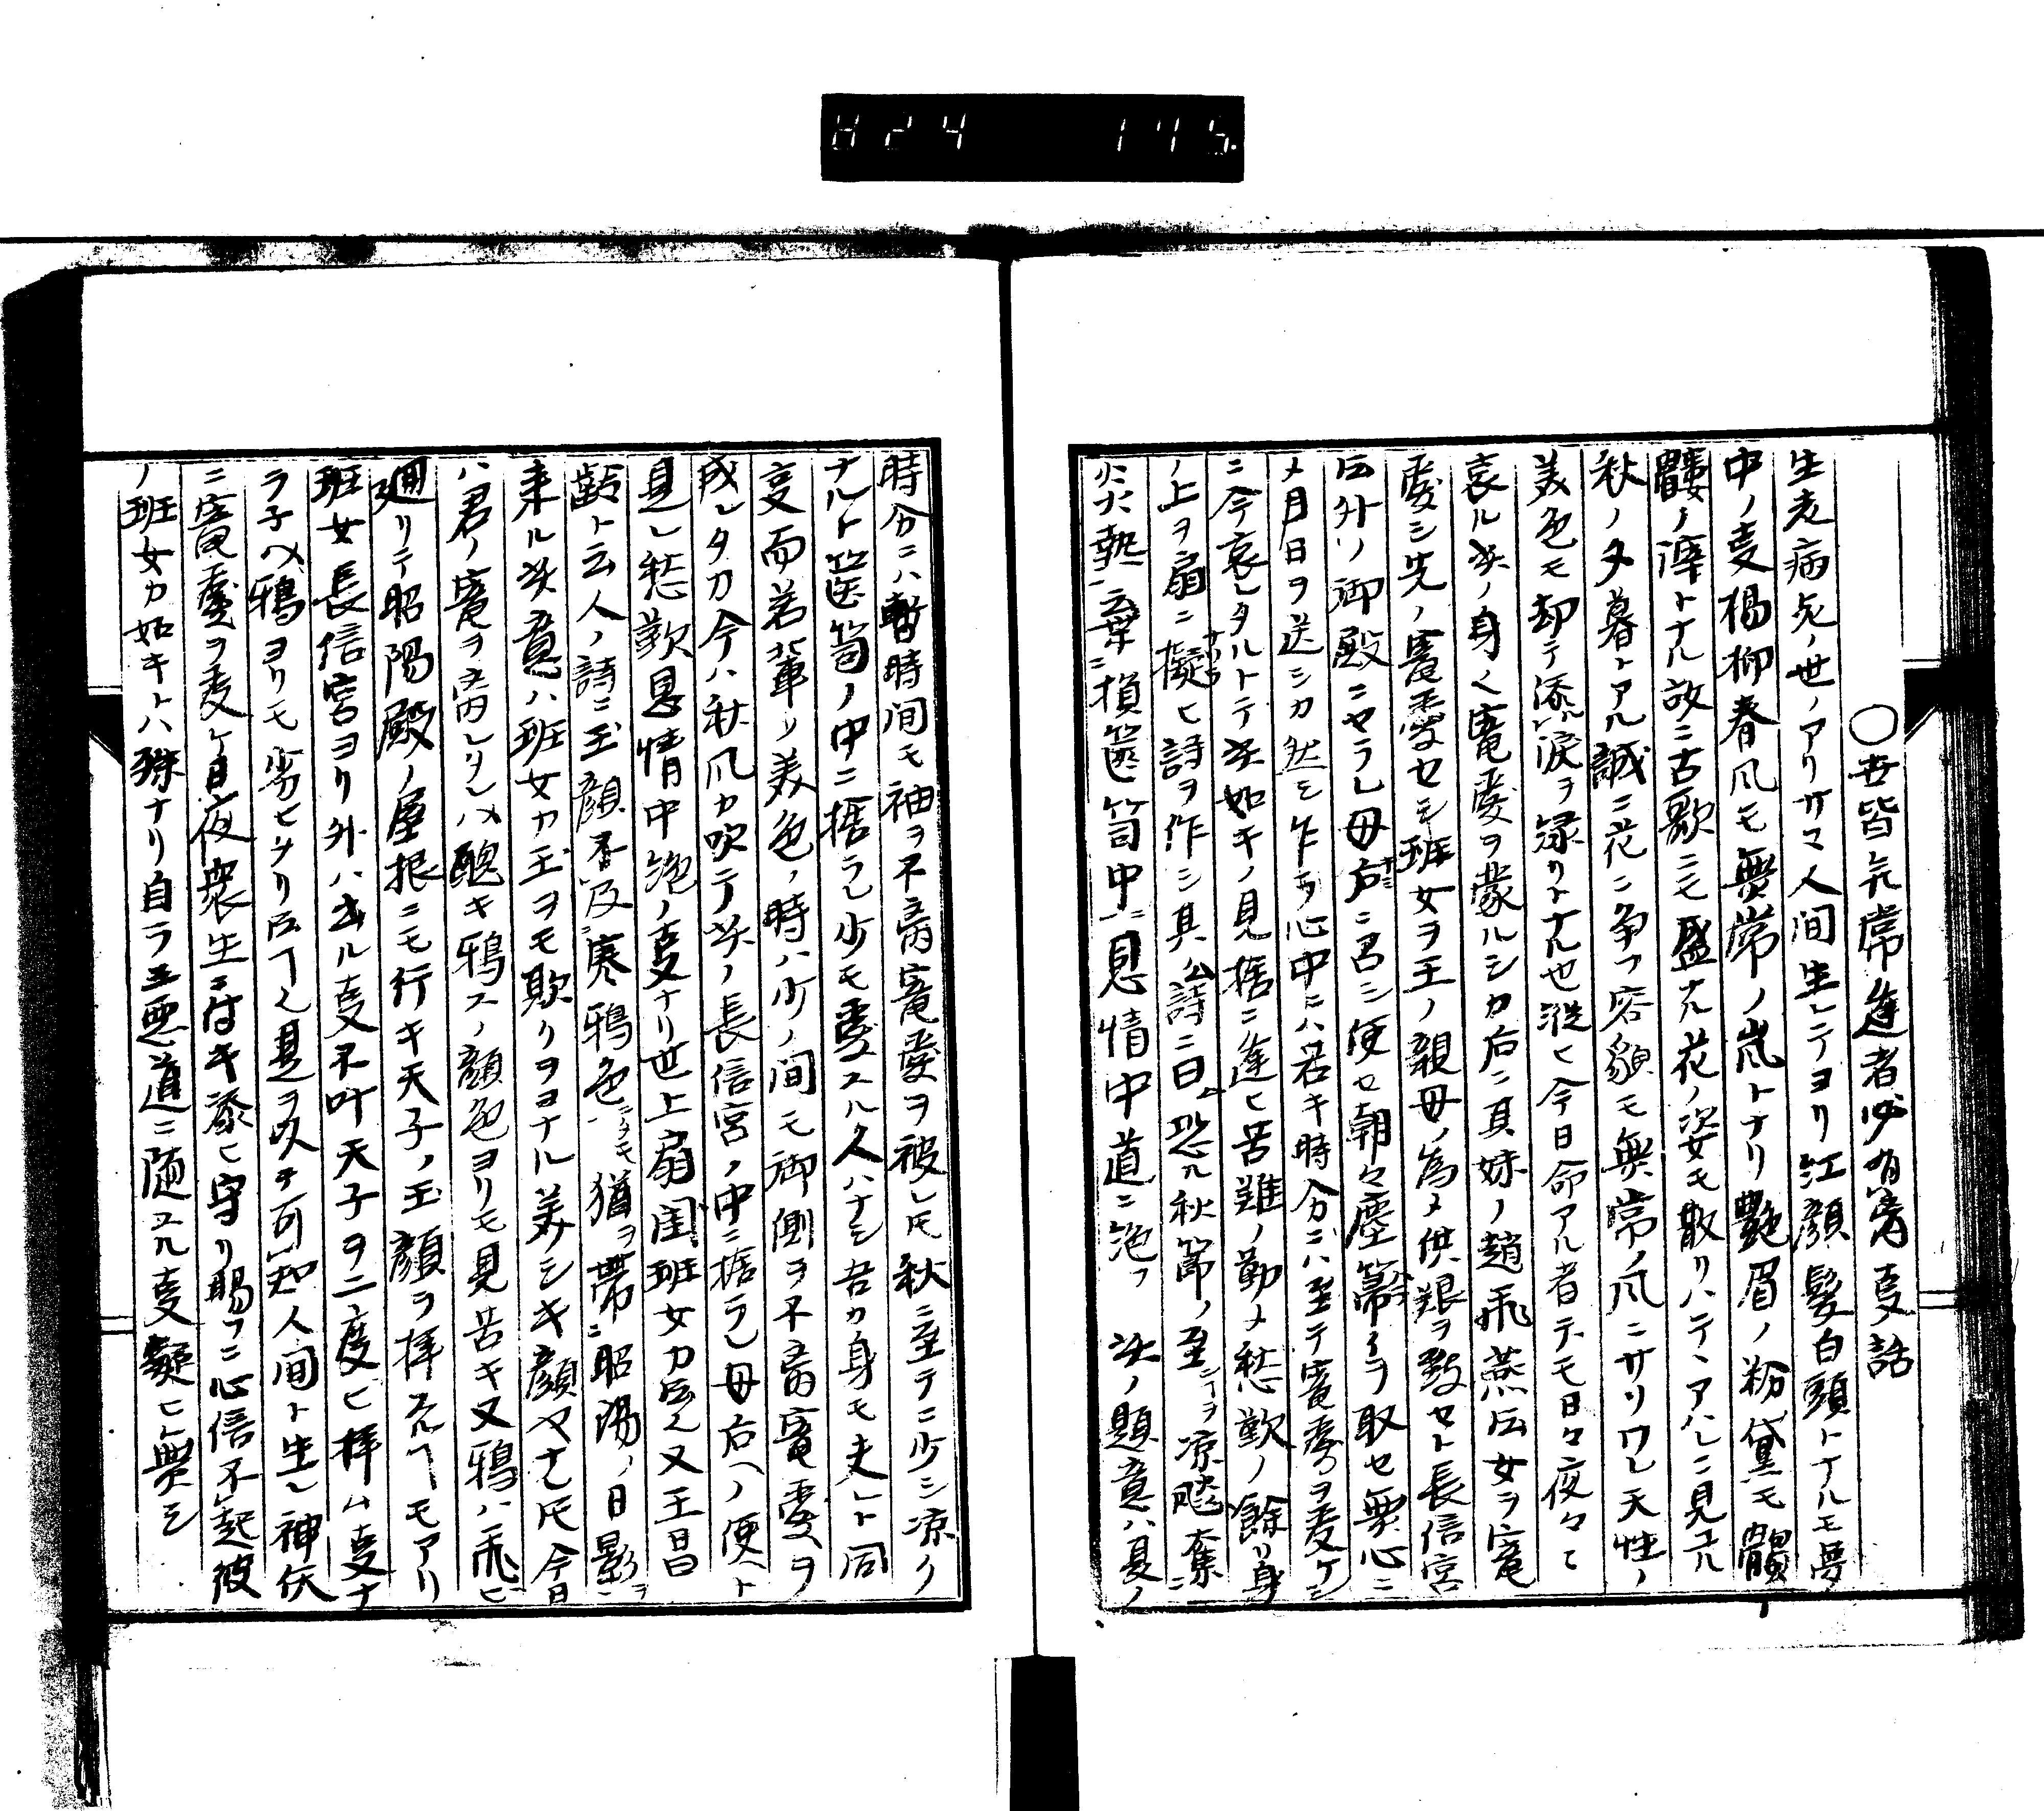 824 175.
〇世皆無常逢者必有離事ノ話
生老病死ノ世ノアリサマ人間生レテヨリ紅顔髪白頭トナルモ夢
中ノ事楊柳春風モ無常ノ嵐トナリ艶眉ノ粉黛モ髑
髏ノ滓トナル故ニ古歌ニモ盛ナル花ノ姿モ散リハテヽアハレニ見ユル
秋ノ夕暮トアル誠ニ花ニ争フ容貌モ無常ノ風ニサソワレ天性ノ
美色モ却テ添涙ヲ縁リトナル也従ヒ今日命アル者テモ日々夜々ニ
哀ル其ノ身ハ寵愛ヲ蒙ルシカ后ニ其妹ノ趙飛燕ト云女ヲ寵
愛シ先ノ寵愛セシ班女ヲ王ノ親母ノ為メ供銀ヲ致セト長信宮
ト云外ノ御殿ニヤラレ母后ニ召シ使セ朝々塵箒ヲ取セ無心ニ
メ月日ヲ送シカ然シ乍ラ心中ニハ若キ時分ニハ至テ寵愛ヲ受ケシ
ニ今哀レタルトテ其如キノ見捨ニ逢ヒ苦難ノ勤メ愁歎ノ餘リ身
ノ上ヲ扇ニ擬ヒ詩ヲ作シ其ノ詩ニ曰恐ル秋節ノ至ラ凉飈奪
炎熱ニ棄損篋笥中ニ恩情中道ニ絶フ 其ノ題意ハ夏ノ
時分ニハ暫時間モ袖ヲ不離寵愛ヲ被レ𪜈秋ニ至テニ少シ凉ク
ナルト篋笥ノ中ニ捨ラレ少モ愛スル人ハナシ吾カ身モ夫レト同
事而若輩ノ美色ノ時ハ少ノ間モ御側ヲ不離寵愛ヲ
成レタカ今ハ秋風カ吹テ其ノ長信宮ノ中ニ捨ラレ母后ヘノ便ト
見レ愁歎恩情中絶ノ事ナリ世上扇閨班女カト云又王昌
齢ト云人ノ詩ニ玉顔不及寒鴉色ニタモ猶ヲ帯ニ昭陽ノ日影ヲ
来ル其意ハ班女カ玉ヲモ欺クヲヨナル美シキ顔ヤナレ𪜈今日
ハ君ノ寵ヲ離レタレハ醜キ鴉スノ顔色ヨリモ見苦キ又鴉ハ飛ヒ
廻リテ昭陽殿ノ屋根ニモ行キ天子ノ玉顔ヲ拝スルヿモアリ
班女長信宮ヨリ外ハ出ル事不叶天子ヲ二度ヒ拝ム事ナ
ラ子ハ鴉ヨリモ劣ヒナリトヿ是ヲ以テ可知人間ト生レ神仏
ニ寵愛ヲ受ケ日夜衆生ニ付キ添ヒ守リ賜フニ心信不起彼
ノ班女カ如キトハ殊ナリ自ラ三悪道ニ随ユル事疑ヒ無シ